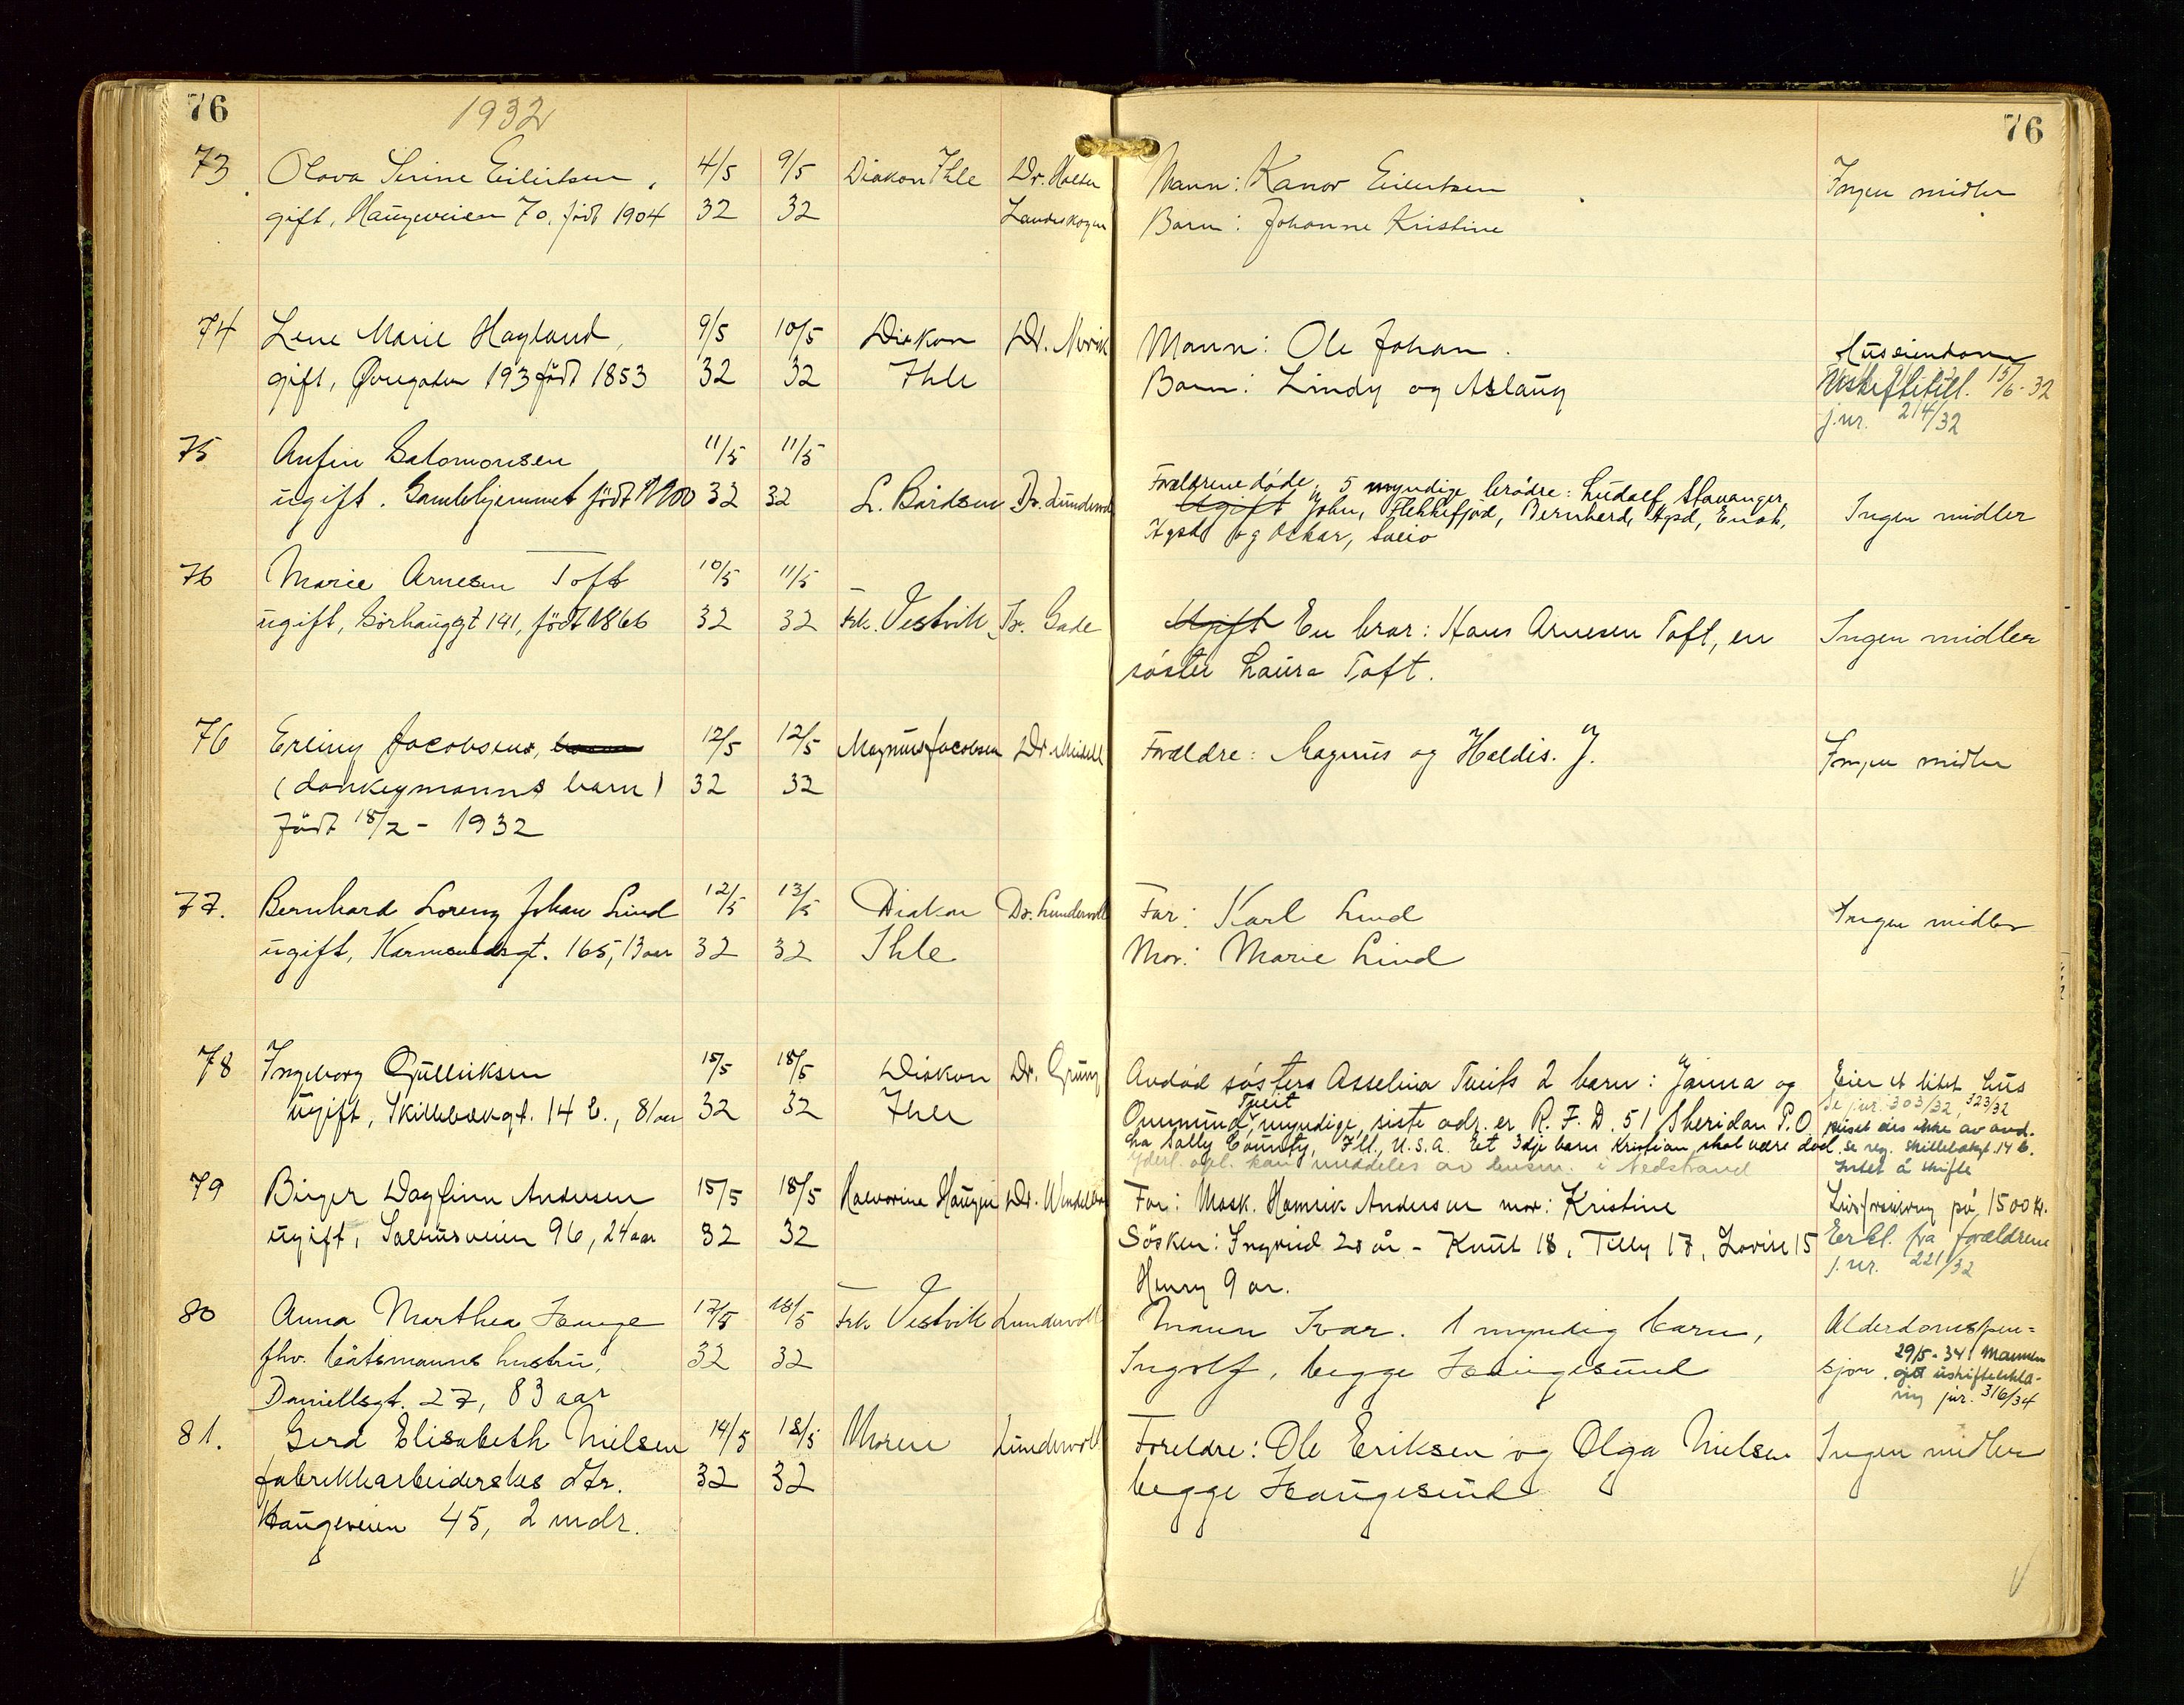 76
1932
76
73 Olava Serine Eilertsen, 4/5 9/5 Diakon Ihle Dr. Halter Mann: Kanor Eilertsen Ingen midler
gift, Haugeveien 70, födt 1904 32 32 Landeskogen Barn: Johanne Kristine
74 Lene Marie Hagland, 9/5 10/5 Diakon Dr. Mann: Ole Johan. Huseiendom
gift, Øvregaten 193 födt 1853 32 32 Ihle Barn: Lindy og Aslaug Uskiftetill. 15/6-32
j.nr. 214/32
75 Anfin Salomonsen 11/5 11/5 Forældrene døde, 5 myndige brödre: Ludolf, Stavanger,
ugift. Gamlehjemmet födt 1900 32 32 L. Bårdsen Dr. Lundevold Ugift John, Flekkefjord, Bernhard, Hgsd, Enok, Ingen midler
Hgsd og Oskar, Sveio
76 Marie Arnesen Toft 10/5 11/5
ugift, Sörhauggt 141, födt 1866 32 32 Frk. Vestvik Dr. Gade Ugift En bror: Hans Arnesen Toft, en Ingen midler
söster Laura Toft.
76 Erling Jacobsen, 12/5 12/5 Magnus Jacobsen Dr. Forældre: Magnus og Haldis. J. Ingen midler
(donkeymanns barn) 32 32
Födt 18/2 - 1932
77. Bernhard Lorenz Johan Lind 12/5 13/5 Diakon Dr. Lundevold Far: Karl Lind Ingen midler
ugift, Karmsundsgt. 165, 13 aar 32 32 Ihle Mor: Marie Lind
78 Ingeborg Gulliksen 15/5 18/5 Diakon Dr. Grung Avdöd sösters Asselina Tveits 2 barn: Janna og Eier et litet hus
Se jnr. 303/32, 323/32
ugift, Skillebekgt. 14 b., 81 aar 32 32 Ihle Ommund Tveit, myndige, siste adr. er R. F. D. 51 Sheridan P.O. Huset eies ikke av avd.
La Sally County, Ill., U.S.A. Et 3dje barn Kristian skal være död. Se reg. Skillebekgt. 14 b.
Yderl. opl. kan meddeles av lensm. i Nedstrand Intet å skifte
79 Birger Dagfinn Andersen 15/5 18/5 Halvorine Haugen Dr. Far: Mask. Hamrik Andersen mor: Kristine Livsforsikring på 1500 kr.
ugift, Salhusveien 96, 24 aar 32 32 Søsken: Ingvild 20 år - Knut 18, Tilly 17, Lovise 15 Erkl. fra forældrene
Henry 9 ar. j.nr. 221/32
80 Anna Marthea Hauge 17/5 18/5 Frk Vestvik Lundevold Mann Ivar. 1 myndig barn, Alderdomspen=
fhv. båtsmanns hustru, 32 32 Ingolf, begge Haugesund sjon. 29/5-34 Mannen
gitt uskifteerklæ-
Daniellsgt. 27, 83 aar ring jnr. 316/34
81. Gerd Elisabeth Nielsen 14/5 18/5 Moren Lundevold Foreldre: Ole Eriksen og Olga Nielsen Ingen midler
fabrikkarbeiderskes dtr. 32 32 begge Haugesund
Haugeveien 45, 2 mdr.